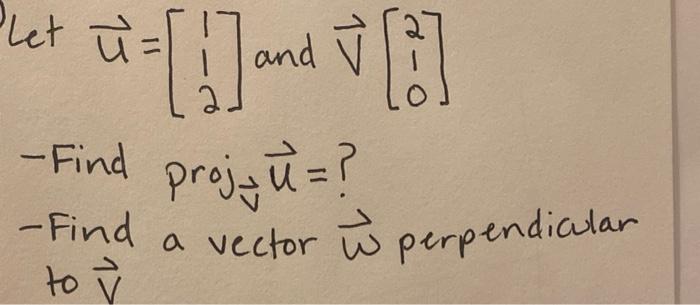 Let u⃗ = [1 1 2] and v⃗ [2 1 0]
-Find proj_v⃗ u⃗ = ?
-Find a vector w⃗ perpendicular
to v⃗